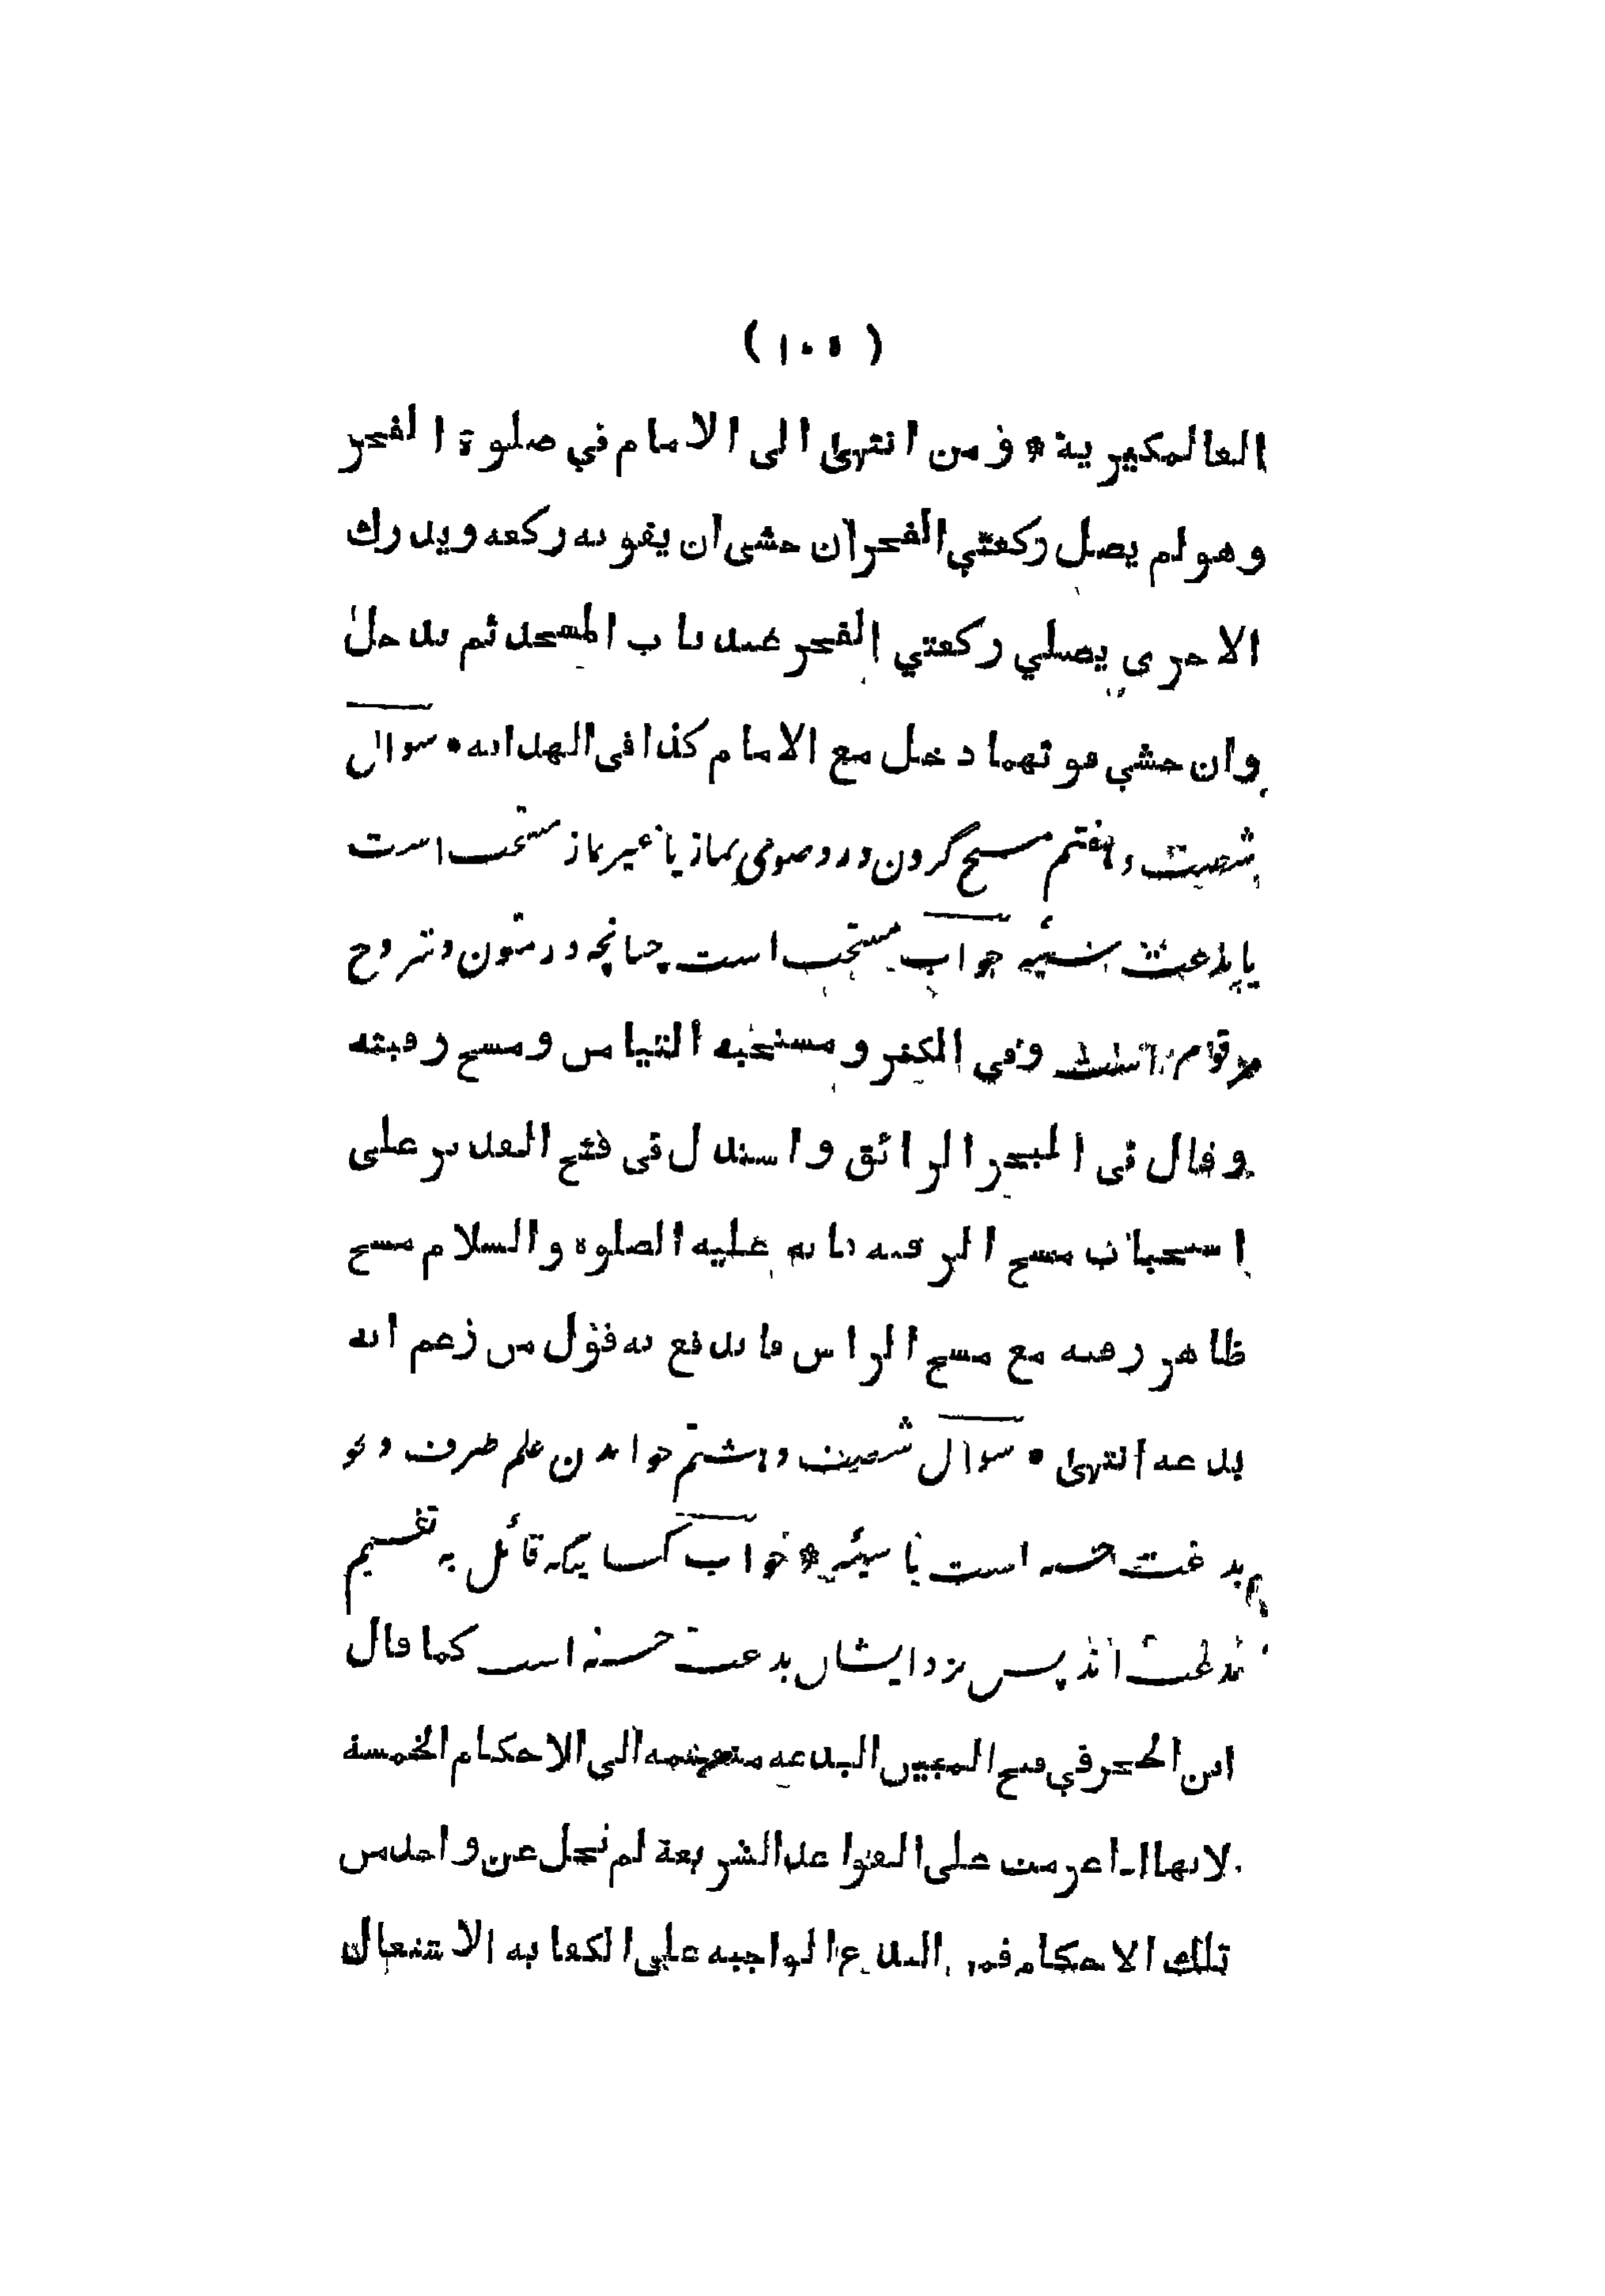 ( ١٠٥ )
العالمكيرية * و من انتهى الى الامام في صلوة الفجر
وهو لم يصل ركعتي الفجر ان خشى ان يفوته ركعة ويدرك
الاخرى يصلي ركعتي الفجر عند باب المسجد ثم يدخل
وان خشي فوتهما دخل مع الامام كذا فى الهداية * سوال
شصت و هفتم مسح گردن در وضوی نماز یا غیر نماز مستحب است
یا بدعت سیئه جواب مستحب است چنانچه در متون و شروح
مرقوم است وفي الكنز و مستحبه التيامن ومسح رقبته
وقال فى البحر الرائق واستدل فى فتح القدير على
استحباب مسح الرقبة بانه عليه الصلوة والسلام مسح
ظاهر رقبته مع مسح الراس فاندفع به قول من زعم انه
بدعة انتهى * سوال شصت و هشتم خواندن علم صرف و نحو
بدعت حسنه است یا سیئه * جواب کسانیکه قائل به تقسیم
بدعت اند پس نزد ایشان بدعت حسنه است كما قال
ابن الحجر في فتح المبين البدعة منقسمة الى الاحكام الخمسة
لانها اذا عرضت على القواعد الشريعة لم تخل عن واحد من
تلك الاحكام فمن البدع الواجبة على الكفاية الاشتغال